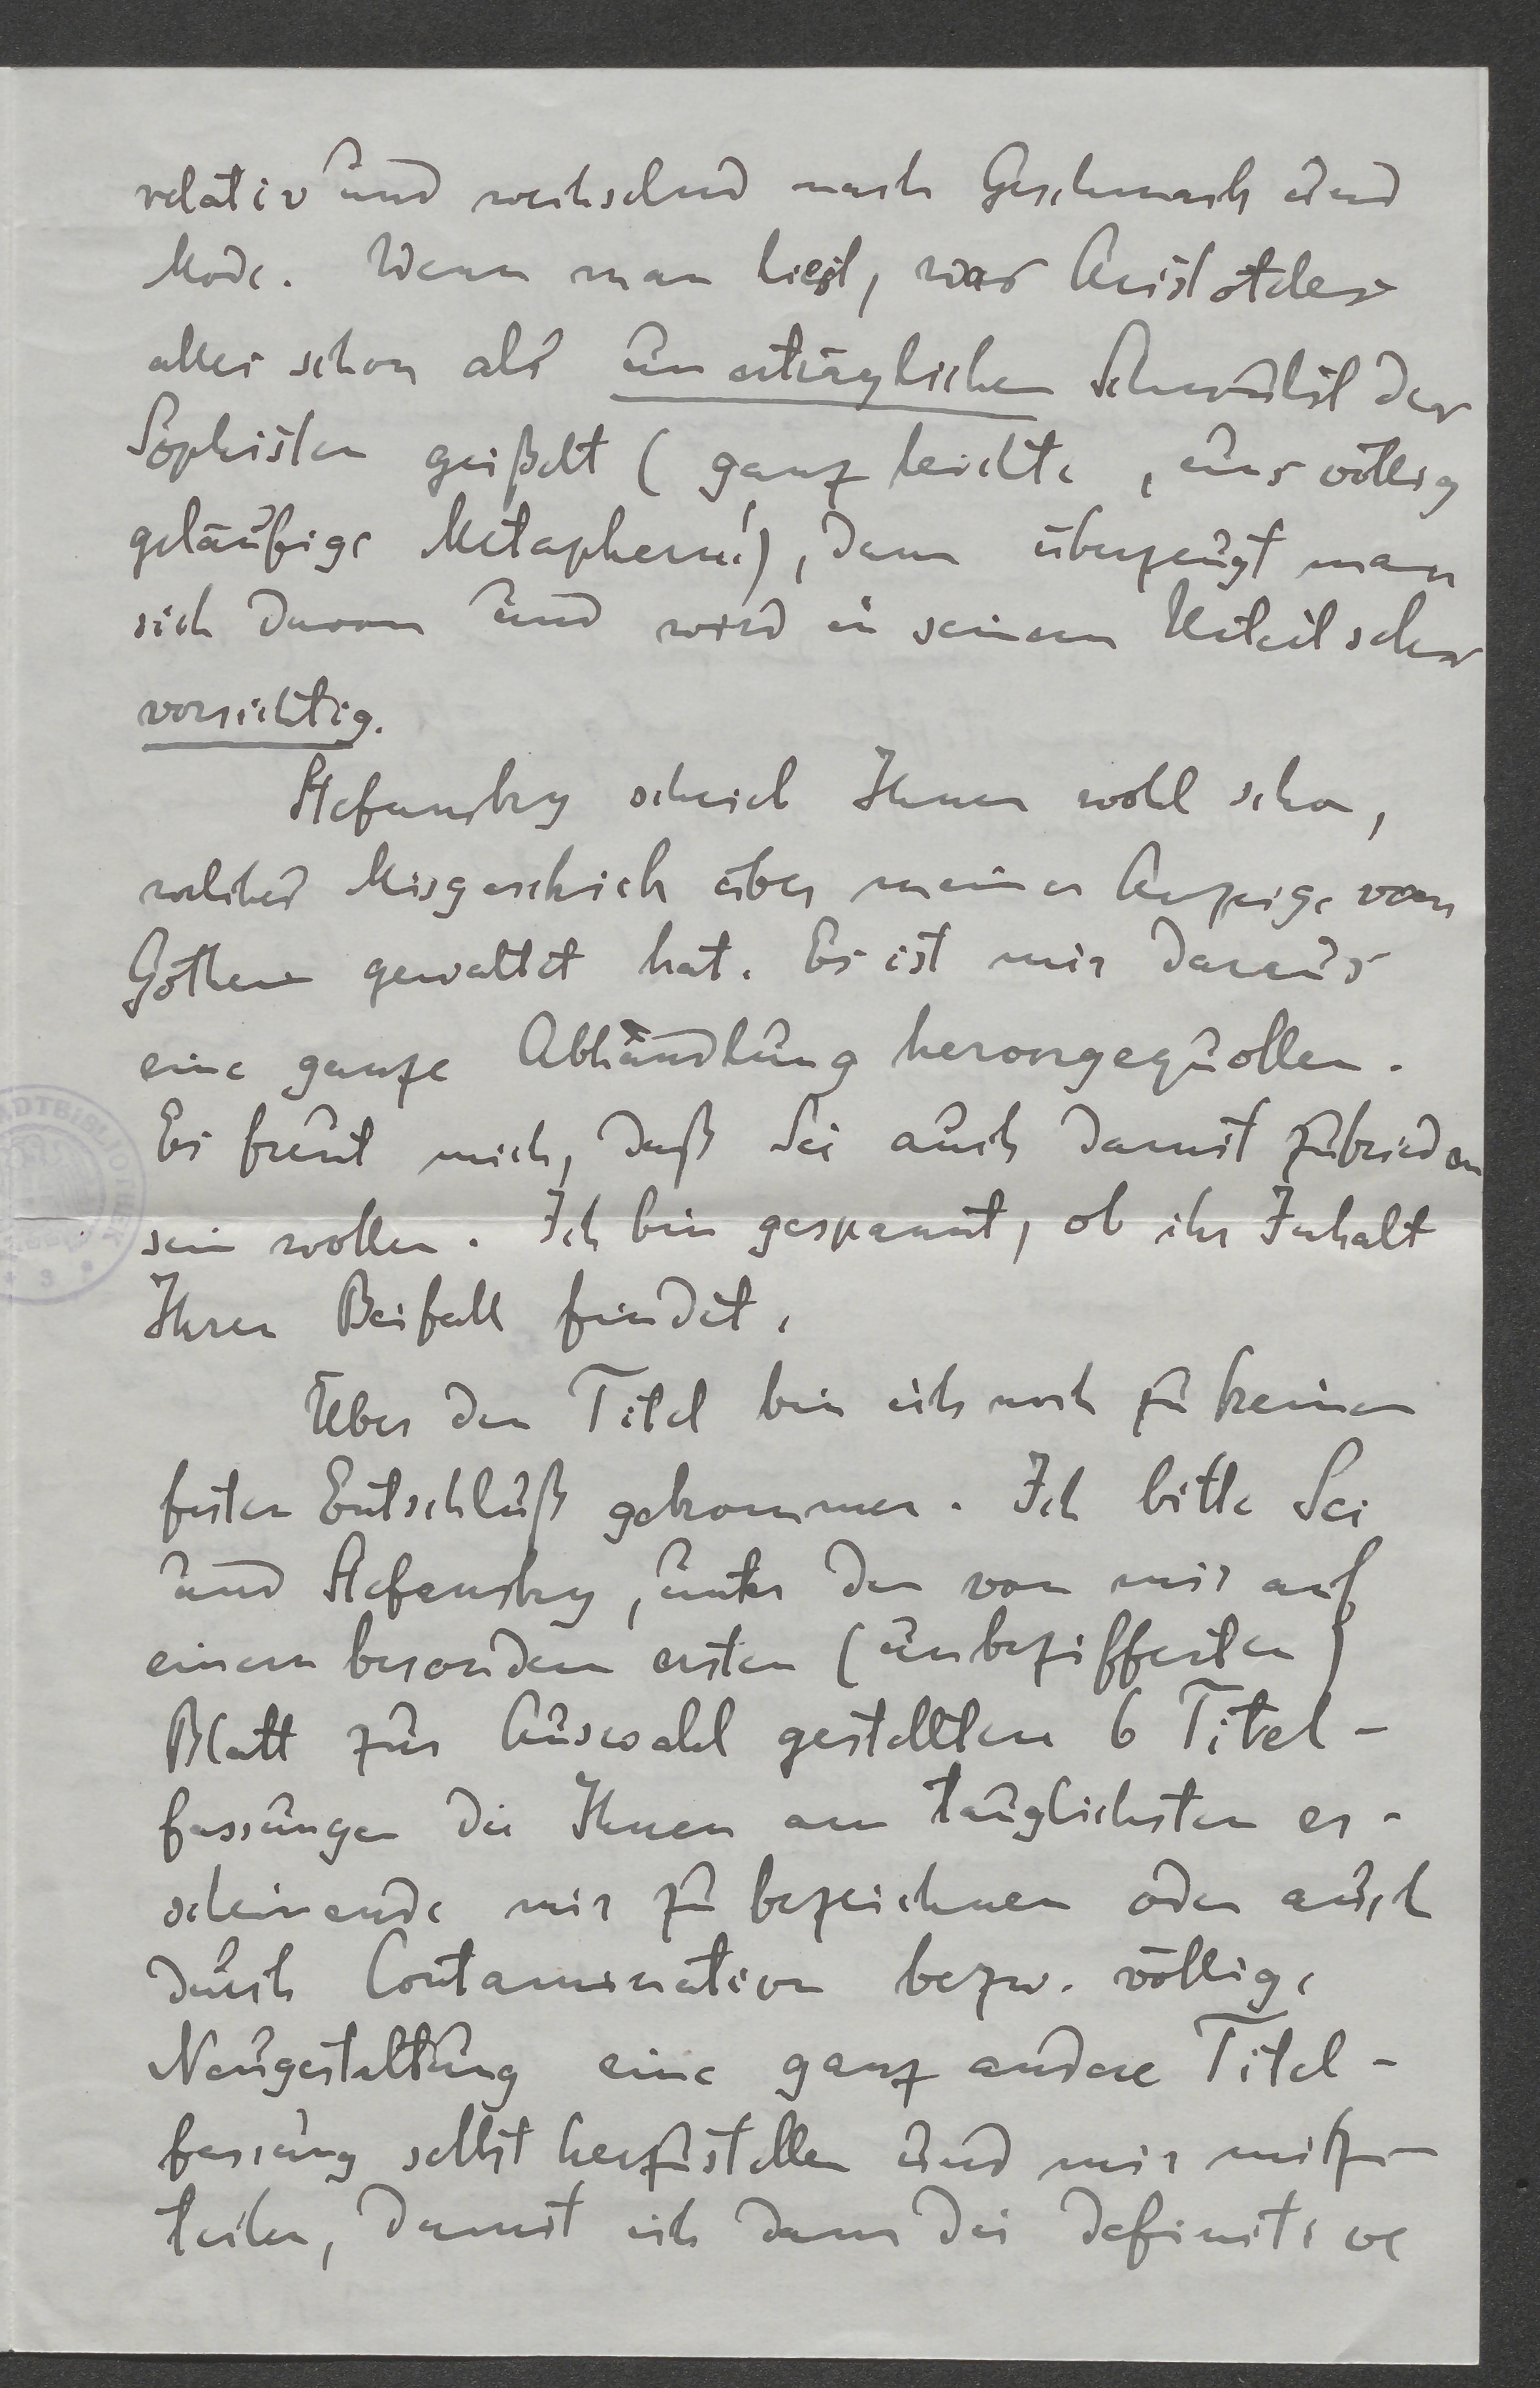 relativ und wechselnd nach Geschmack und
Mode. Wenn man liest, was Aristoteles
alles schon als unerträglichen Schwulst der
Sophisten geißelt (ganz leichte, uns völlig
geläufige Metaphern!), dann überzeugt man
sich davon und wird in seinem Urteil sehr
vorsichtig.
Stefansky schrieb Ihnen wohl schon,
welches Misgeschick über meiner Anzeige von
Gothein gewaltet hat. Es ist mir daraus
eine ganze Abhandlung hervorgequollen.
Es freut mich, daß Sie auch damit zufrieden
sein wollen. Ich bin gespannt, ob ihr Inhalt
Ihren Beifall findet.
Über den Titel bin ich noch zu keinem
festen Entschluß gekommen. Ich bitte Sie
und Stefansky, unter den von mir auf
einem besondern ersten (unbezifferten)
Blatt zur Auswahl gestellten 6 Titel-
fassungen die Ihnen am tauglichsten er-
scheinende mir zu bezeichnen oder auch
durch Contamination bezw. völlige
Neugestaltung eine ganz andere Titel-
fassung selbst herzustellen und mir mitzu-
teilen, damit ich dann die definitive
3